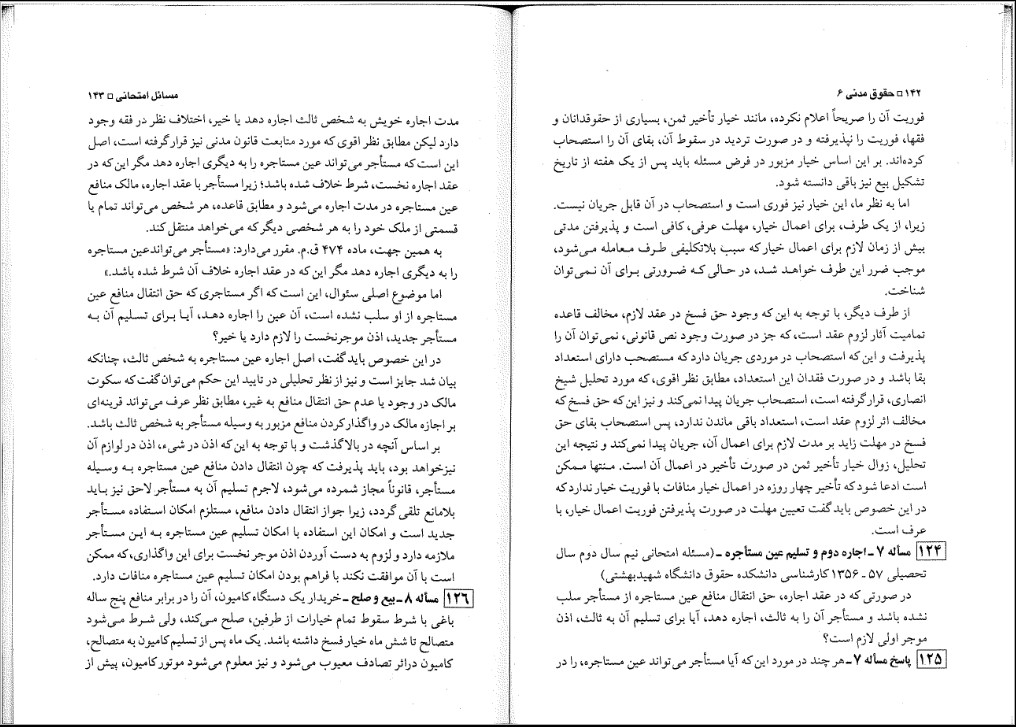 ۱۴۲ □ حقوق مدنی ۶
فوریت آن را صریحاً اعلام نکرده، مانند خیار تأخیر ثمن، بسیاری از حقوقدانان و
فقها، فوریت را نپذیرفته و در صورت تردید در سقوط آن، بقای آن را استصحاب
کرده‌اند. بر این اساس خیار مزبور در فرض مسئله باید پس از یک هفته از تاریخ
تشکیل بیع نیز باقی دانسته شود.
اما به نظر ما، این خیار نیز فوری است و استصحاب در آن قابل جریان نیست.
زیرا، از یک طرف، برای اعمال خیار، مهلت عرفی، کافی است و پذیرفتن مدتی
بیش از زمان لازم برای اعمال خیار که سبب بلاتکلیفی طرف معامله می‌شود،
موجب ضرر این طرف خواهد شد، در حالی که ضرورتی برای آن نمی‌توان
شناخت.
از طرف دیگر، با توجه به این که وجود حق فسخ در عقد لازم، مخالف قاعده
تمامیت آثار لزوم عقد است، که جز در صورت وجود نص قانونی، نمی‌توان آن را
پذیرفت و این که استصحاب در موردی جریان دارد که مستصحب دارای استعداد
بقا باشد و در صورت فقدان این استعداد، مطابق نظر اقوی، که مورد تحلیل شیخ
انصاری، قرار گرفته است، استصحاب جریان پیدا نمی‌کند و نیز این که حق فسخ که
مخالف اثر لزوم عقد است، استعداد باقی ماندن ندارد، پس استصحاب بقای حق
فسخ در مهلت زاید بر مدت لازم برای اعمال آن، جریان پیدا نمی‌کند و نتیجه این
تحلیل، زوال خیار تأخیر ثمن در صورت تأخیر در اعمال آن است. منتها ممکن
است ادعا شود که تأخیر چهار روزه در اعمال خیار منافات با فوریت خیار ندارد که
در این خصوص باید گفت تعیین مهلت در صورت پذیرفتن فوریت اعمال خیار، با
عرف است.
۱۲۴ مسأله ۷ ـ اجاره دوم و تسلیم عین مستأجره ـ (مسئله امتحانی نیم سال دوم سال
تحصیلی ۵۷ ـ ۱۳۵۶ کارشناسی دانشکده حقوق دانشگاه شهیدبهشتی)
در صورتی که در عقد اجاره، حق انتقال منافع عین مستأجره از مستأجر سلب
نشده باشد و مستأجر آن را به ثالث، اجاره دهد، آیا برای تسلیم آن به ثالث، اذن
موجر اولی لازم است؟
۱۲۵ پاسخ مسأله ۷ ـ هر چند در مورد این که آیا مستأجر می‌تواند عین مستاجره، را در
مسائل امتحانی □ ۱۴۳
مدت اجاره خویش به شخص ثالث اجاره دهد یا خیر، اختلاف نظر در فقه وجود
دارد لیکن مطابق نظر اقوی که مورد متابعت قانون مدنی نیز قرار گرفته است، اصل
این است که مستأجر می‌تواند عین مستاجره را به دیگری اجاره دهد مگر این که در
عقد اجاره نخست، شرط خلاف شده باشد؛ زیرا مستأجر با عقد اجاره، مالک منافع
عین مستاجره در مدت اجاره می‌شود و مطابق قاعده، هر شخص می‌تواند تمام یا
قسمتی از ملک خود را به هر شخصی دیگر که می‌خواهد منتقل کند.
به همین جهت، ماده ۴۷۴ ق.م. مقرر می‌دارد: «مستأجر می‌تواند عین مستاجره
را به دیگری اجاره دهد مگر این که در عقد اجاره خلاف آن شرط شده باشد.»
اما موضوع اصلی سئوال، این است که اگر مستاجری که حق انتقال منافع عین
مستاجره از او سلب نشده است، آن عین را اجاره دهد، آیا برای تسلیم آن به
مستأجر جدید، اذن موجرنخست را لازم دارد یا خیر؟
در این خصوص باید گفت، اصل اجاره عین مستاجره به شخص ثالث، چنانکه
بیان شد جایز است و نیز از نظر تحلیلی در تایید این حکم می‌توان گفت که سکوت
مالک در وجود یا عدم حق انتقال منافع به غیر، مطابق نظر عرف می‌تواند قرینه‌ای
بر اجازه مالک در واگذارکردن منافع مزبور به وسیله مستأجر به شخص ثالث باشد.
بر اساس آنچه در بالا گذشت و با توجه به این که اذن در شیء، اذن در لوازم آن
نیز خواهد بود، باید پذیرفت که چون انتقال دادن منافع عین مستاجره به وسیله
مستأجر، قانوناً مجاز شمرده می‌شود، لاجرم تسلیم آن به مستأجر لاحق نیز باید
بلامانع تلقی گردد، زیرا جواز انتقال دادن منافع، مستلزم امکان استفاده مستأجر
جدید است و امکان این استفاده با امکان تسلیم عین مستاجره به این مستأجر
ملازمه دارد و لزوم به دست آوردن اذن موجر نخست برای این واگذاری، که ممکن
است با آن موافقت نکند با فراهم بودن امکان تسلیم عین مستاجره منافات دارد.
۱۲۶ مسأله ۸ ـ بیع و صلح ـ خریدار یک دستگاه کامیون، آن را در برابر منافع پنج ساله
باغی با شرط سقوط تمام خیارات از طرفین، صلح می‌کند، ولی شرط می‌شود
متصالح تا شش ماه خیار فسخ داشته باشد. یک ماه پس از تسلیم کامیون به متصالح،
کامیون دراثر تصادف معیوب می‌شود و نیز معلوم می‌شود موتور کامیون، پیش از